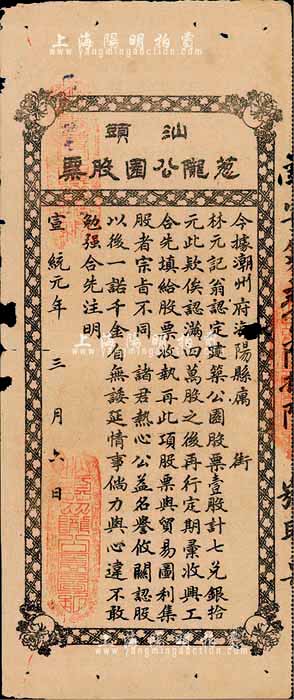 上海陽明拍賣
www.yangmingauction.com
汕頭
蔥隴公園股票
今據潮州府潮陽縣屬 街
林元記翁認定建築公園股票壹股計七兌銀拾
元此欵俟認滿四萬股之後再行定期彙收興工
合先填給股票收執再此項股票與貿易圖利集
股者宗旨不同 諸君熱心公益名譽攸關認股
以後一諾千金自無諉延情事倘力與心違不敢
勉强合先注明
宣統元年 三 月 六 日
上海陽明拍賣
www.yangmingauction.com